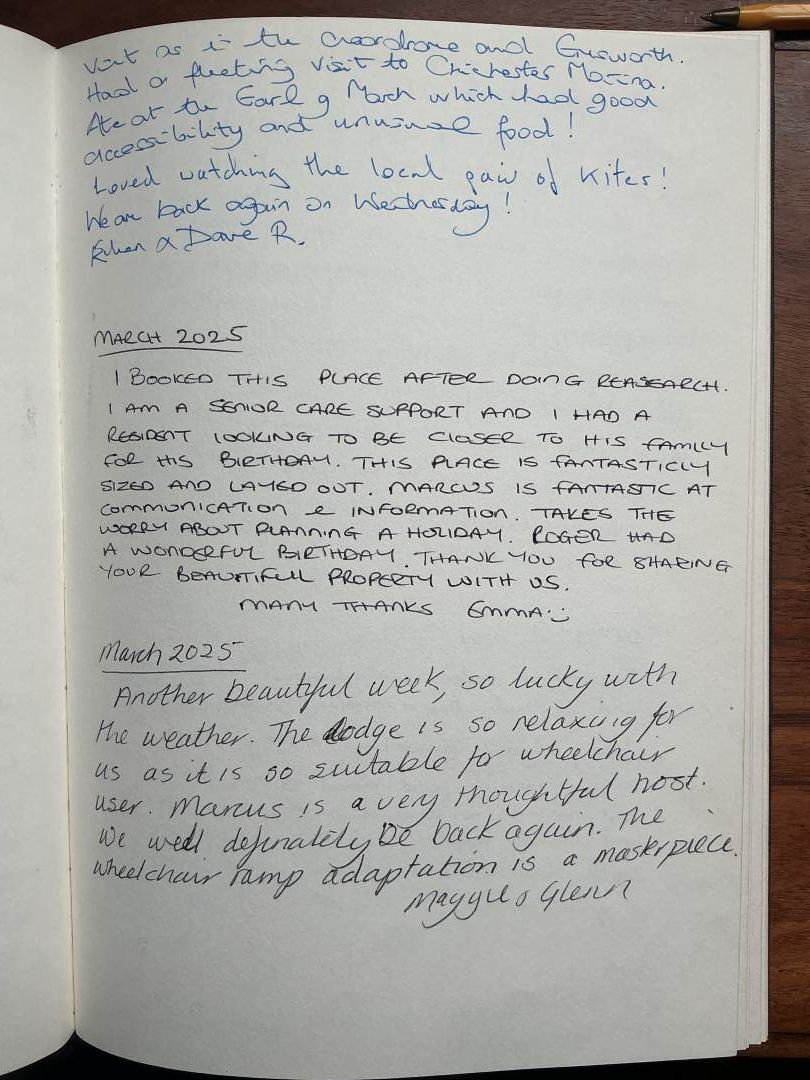 visit as is the and
Had a fleeting visit to Chichester Marina.
Ate at the Earl of March which had good
accessibility and unusual food!
Loved watching the local pair of Kites!
We are back again on Wednesday!
& Dave R.
MARCH 2025
I BOOKED THIS PLACE AFTER DOING REASEARCH.
I AM A SENIOR CARE SUPPORT AND I HAD A
RESIDENT LOOKING TO BE CLOSER TO HIS FAMILY
FOR HIS BIRTHDAY. THIS PLACE IS FANTASTICLY
SIZED AND LAYED OUT. MARCUS IS FANTASTIC AT
COMMUNICATION & INFORMATION. TAKES THE
WORRY ABOUT PLANNING A HOLIDAY. ROGER HAD
A WONDERFUL BIRTHDAY. THANK YOU FOR SHARING
YOUR BEAUTIFULL PROPERTY WITH US.
MANY THANKS EMMA :)
March 2025
Another beautiful week, so lucky with
the weather. The lodge is so relaxing for
us as it is so suitable for wheelchair
user. Marcus is a very thoughtful host.
We will definately be back again. The
wheelchair ramp adaptation is a masterpiece.
Maggie & Glenn